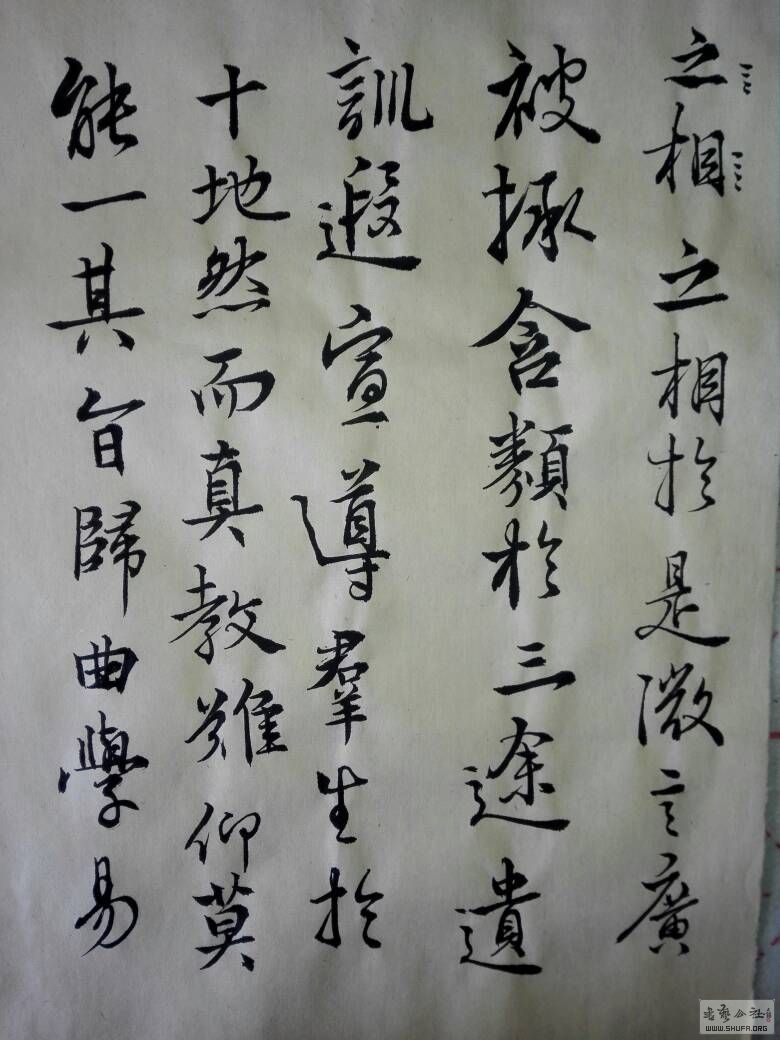 之相之相於是微言廣
被拯含類於三途遺
訓遐宣導羣生於
十地然而真教難仰莫
能一其旨歸曲學易
书艺公社
WWW.SHUFA.ORG